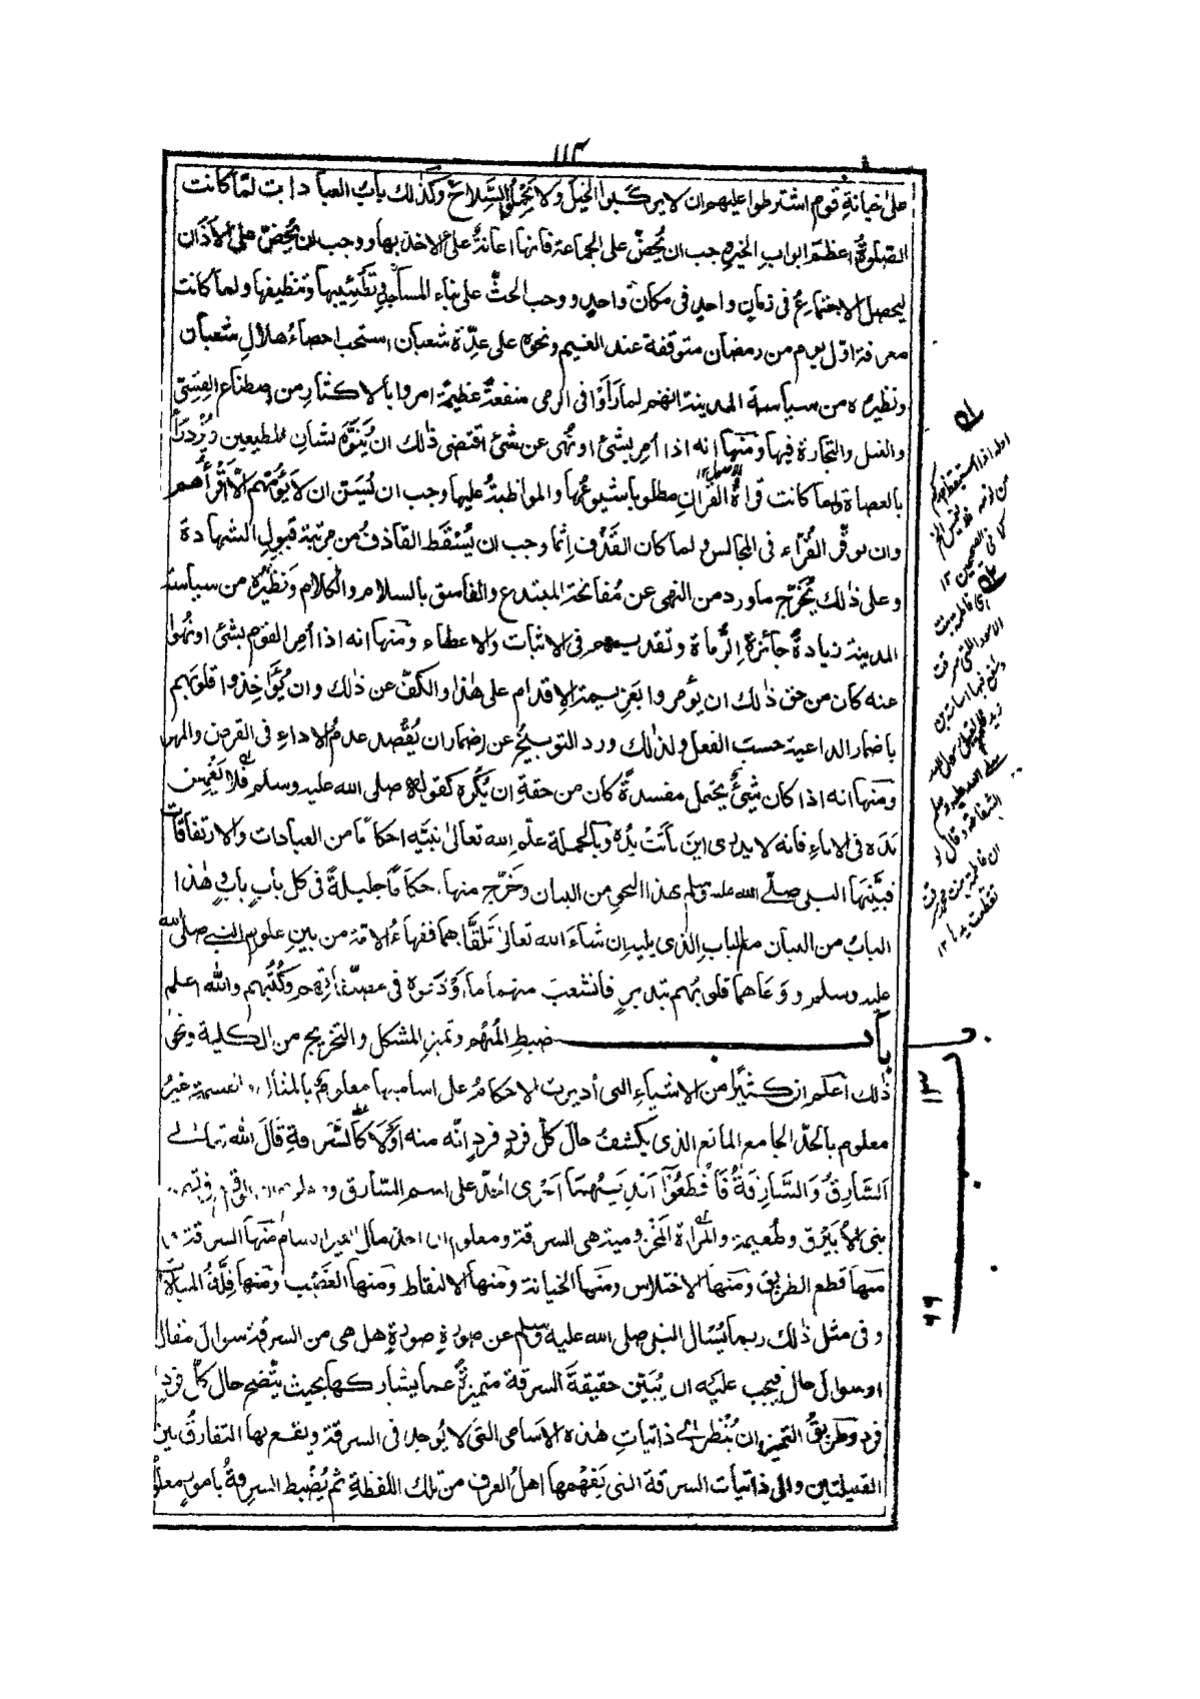 ١١٣
على خيانةِ قوم اشترطوا عليهم ان لا يركبوا الخيل ولا يَحْمِلُوا السِّلاحَ وكذٰلك بابُ العبادات لمّا كانت
الصلوةُ اعظم ابوابِ الخير وجب ان يُحَضّ على الجماعة فانها اعانةٌ على الاخذ بها ووجب ان يُحَضّ على الاَذان
ليحصل الاجتماعُ فى زمانٍ واحدٍ فى مكان واحدٍ ووجب الحثّ على بناء المساجد وتَطْيِيبها وتنظيفها ولما كانت
معرفة اوّل يوم من رمضان متوقفة عند الغيم ونحوه على عِدّة شعبان استحب احصاءُ هلالِ شعبان
ونظيره من سياسة المدينة انهم لما رَأَوْا فى الرمى منفعةً عظيمةً امروا بالاكثار من اصطناع القِسِىّ
والنبل والتجارة فيها ومنها انه اذا اُمِر بشئ او نُهى عن شئ اقتضى ذٰلك ان يُنَوَّه بشأن المطيعين ويُزْدَرَأ
بالعصاة ولما كانت قراءةُ القرآنِ مطلوبا شيوعُها والمواظبةُ عليها وجب ان يُسَنّ ان لا يَؤُمّهم الّا اَقْرَأُهم
وان يوقَّر القُرّاء فى المجالس ولما كان القَذْف اِثما وجب ان يُسْقَط القاذفُ من مرتبة قَبولِ الشهادة
وعلى ذٰلك يُخَرَّج ما ورد من النهى عن مُفاتحة المبتدع والفاسق بالسلام والكلام ونَظِيْرُه من سياسة
المدينة زيادةُ جائزةِ الرُّماة وتقديمهم فى الاثبات والاعطاء ومنها انه اذا اُمِر القوم بشئ او نُهُوا
عنه كان من حق ذٰلك ان يؤمروا بعزيمة الاِقدام على هٰذا والكفّ عن ذٰلك وان يُؤاخِذوا قلوبَهم
باضمار الداعية حسبَ الفعل ولذٰلك ورد التوبيخُ عن اِضمار ان يُقْصد عدمُ الاداءِ فى القرض والمهر
ومنها انه اذا كان شئٌ يحتمل مفسدةً كان من حقه ان يُكْرَه كقوله صلى الله عليه وسلم فلا يَغْمِسْ
يَدَه فى الاناءِ فانه لا يدرى اين باتَتْ يدُه وبالجملة علّم الله تعالىٰ نبيَّه احكامًا من العبادات والارتفاقات
فبيّنها النبى صلّى الله عليه وسلم بهذا النحو من البيان وخَرَّج منها احكامًا جليلةً فى كل بابٍ بابٍ وهٰذا
البابُ من البيان مع الباب الذى يليه ان شاءَ الله تعالىٰ تَلَقَّاهما فقهاءُ الامّة من بين علوم النبى صلى الله
عليه وسلم ووَعَاهما قلوبُهم بتدبرٍ فانشعبَ منهما ما اَوْدَعُوه فى مصنّفاتِهم وكُتُبهم والله اعلم
باب ضبطِ المُبْهَم وتميزِ المشكل والتخريج من الكلية ونحو
ذٰلك اعلم ان كثيرًا من الاشياء التى اُديرت الاحكامُ على اسامِيها معلومٌ بالمثال والقسمة غيرُ
معلوم بالحدّ الجامع المانع الذى يكشفُ حالَ كلِّ فردٍ فردٍ انّه منه اَوْلَا كالسَّرِقةِ قالَ اللهُ تعالىٰ
اَلسَّارِقُ وَالسَّارِقَةُ فَاقْطَعُوْٓا اَيْدِيَهُمَا اَجْرَى الحدّ على اسم السّارق
بنى الاُبَيْرِق وطُعيمة والمرأة المخزومية هى السرقة ومعلوم ان اخذ مال الغير اقسام منها السرقة
منها قطع الطريق ومنها الاختلاس ومنها الخيانة ومنها الالتقاط ومنها الغَصْب ومنها قِلّةُ المبالاة
وفى مثل ذٰلك ربما يُسْأل النبى صلى الله عليه وسلم عن صورةٍ صورةٍ هل هى من السرقة سوالَ مقال
او سوالَ حال فيجب عليه ان يُبَيّن حقيقةَ السرقة متميزةً عما يشاركها بحيث يتّضح حال كلّ فردٍ
فرد وطريقُ التميز ان يُنْظر الىٰ ذاتياتِ هٰذه الاَسامى التى لا يُوجد فى السرقة ويقع بها التفارقُ بين
القبيلتين والى ذاتيات السرقة التى يَفْهمها اهلُ العرف من تلك اللفظةِ ثم يُضبط السرقةُ بامورٍ معلو
اوله اذا استيقظ احدكم
من نومه فلا يغمس الخ
كما فى الصحيحين ١٢
اى فاطمة بنت
الاسود التى سرقت
وشفع فيها اسامة بن
زيد فلم يقبل رسول الله
صلى الله عليه وسلم
الشفاعة وقال لو
ان فاطمة بنت محمد سرقت
لقطعت يدها ١٢
١٣
٩٩